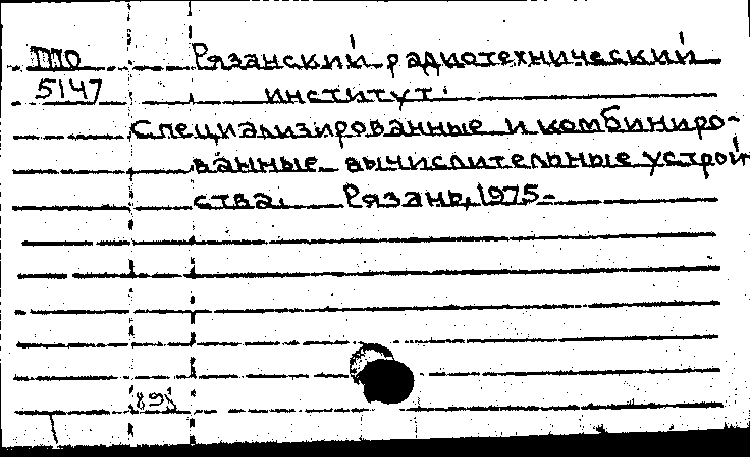 Рязанский радиотехнический
5147 институт.
Специализированные и комбиниро-
ванные вычислительные устрой
ства. Рязань, 1975-
898